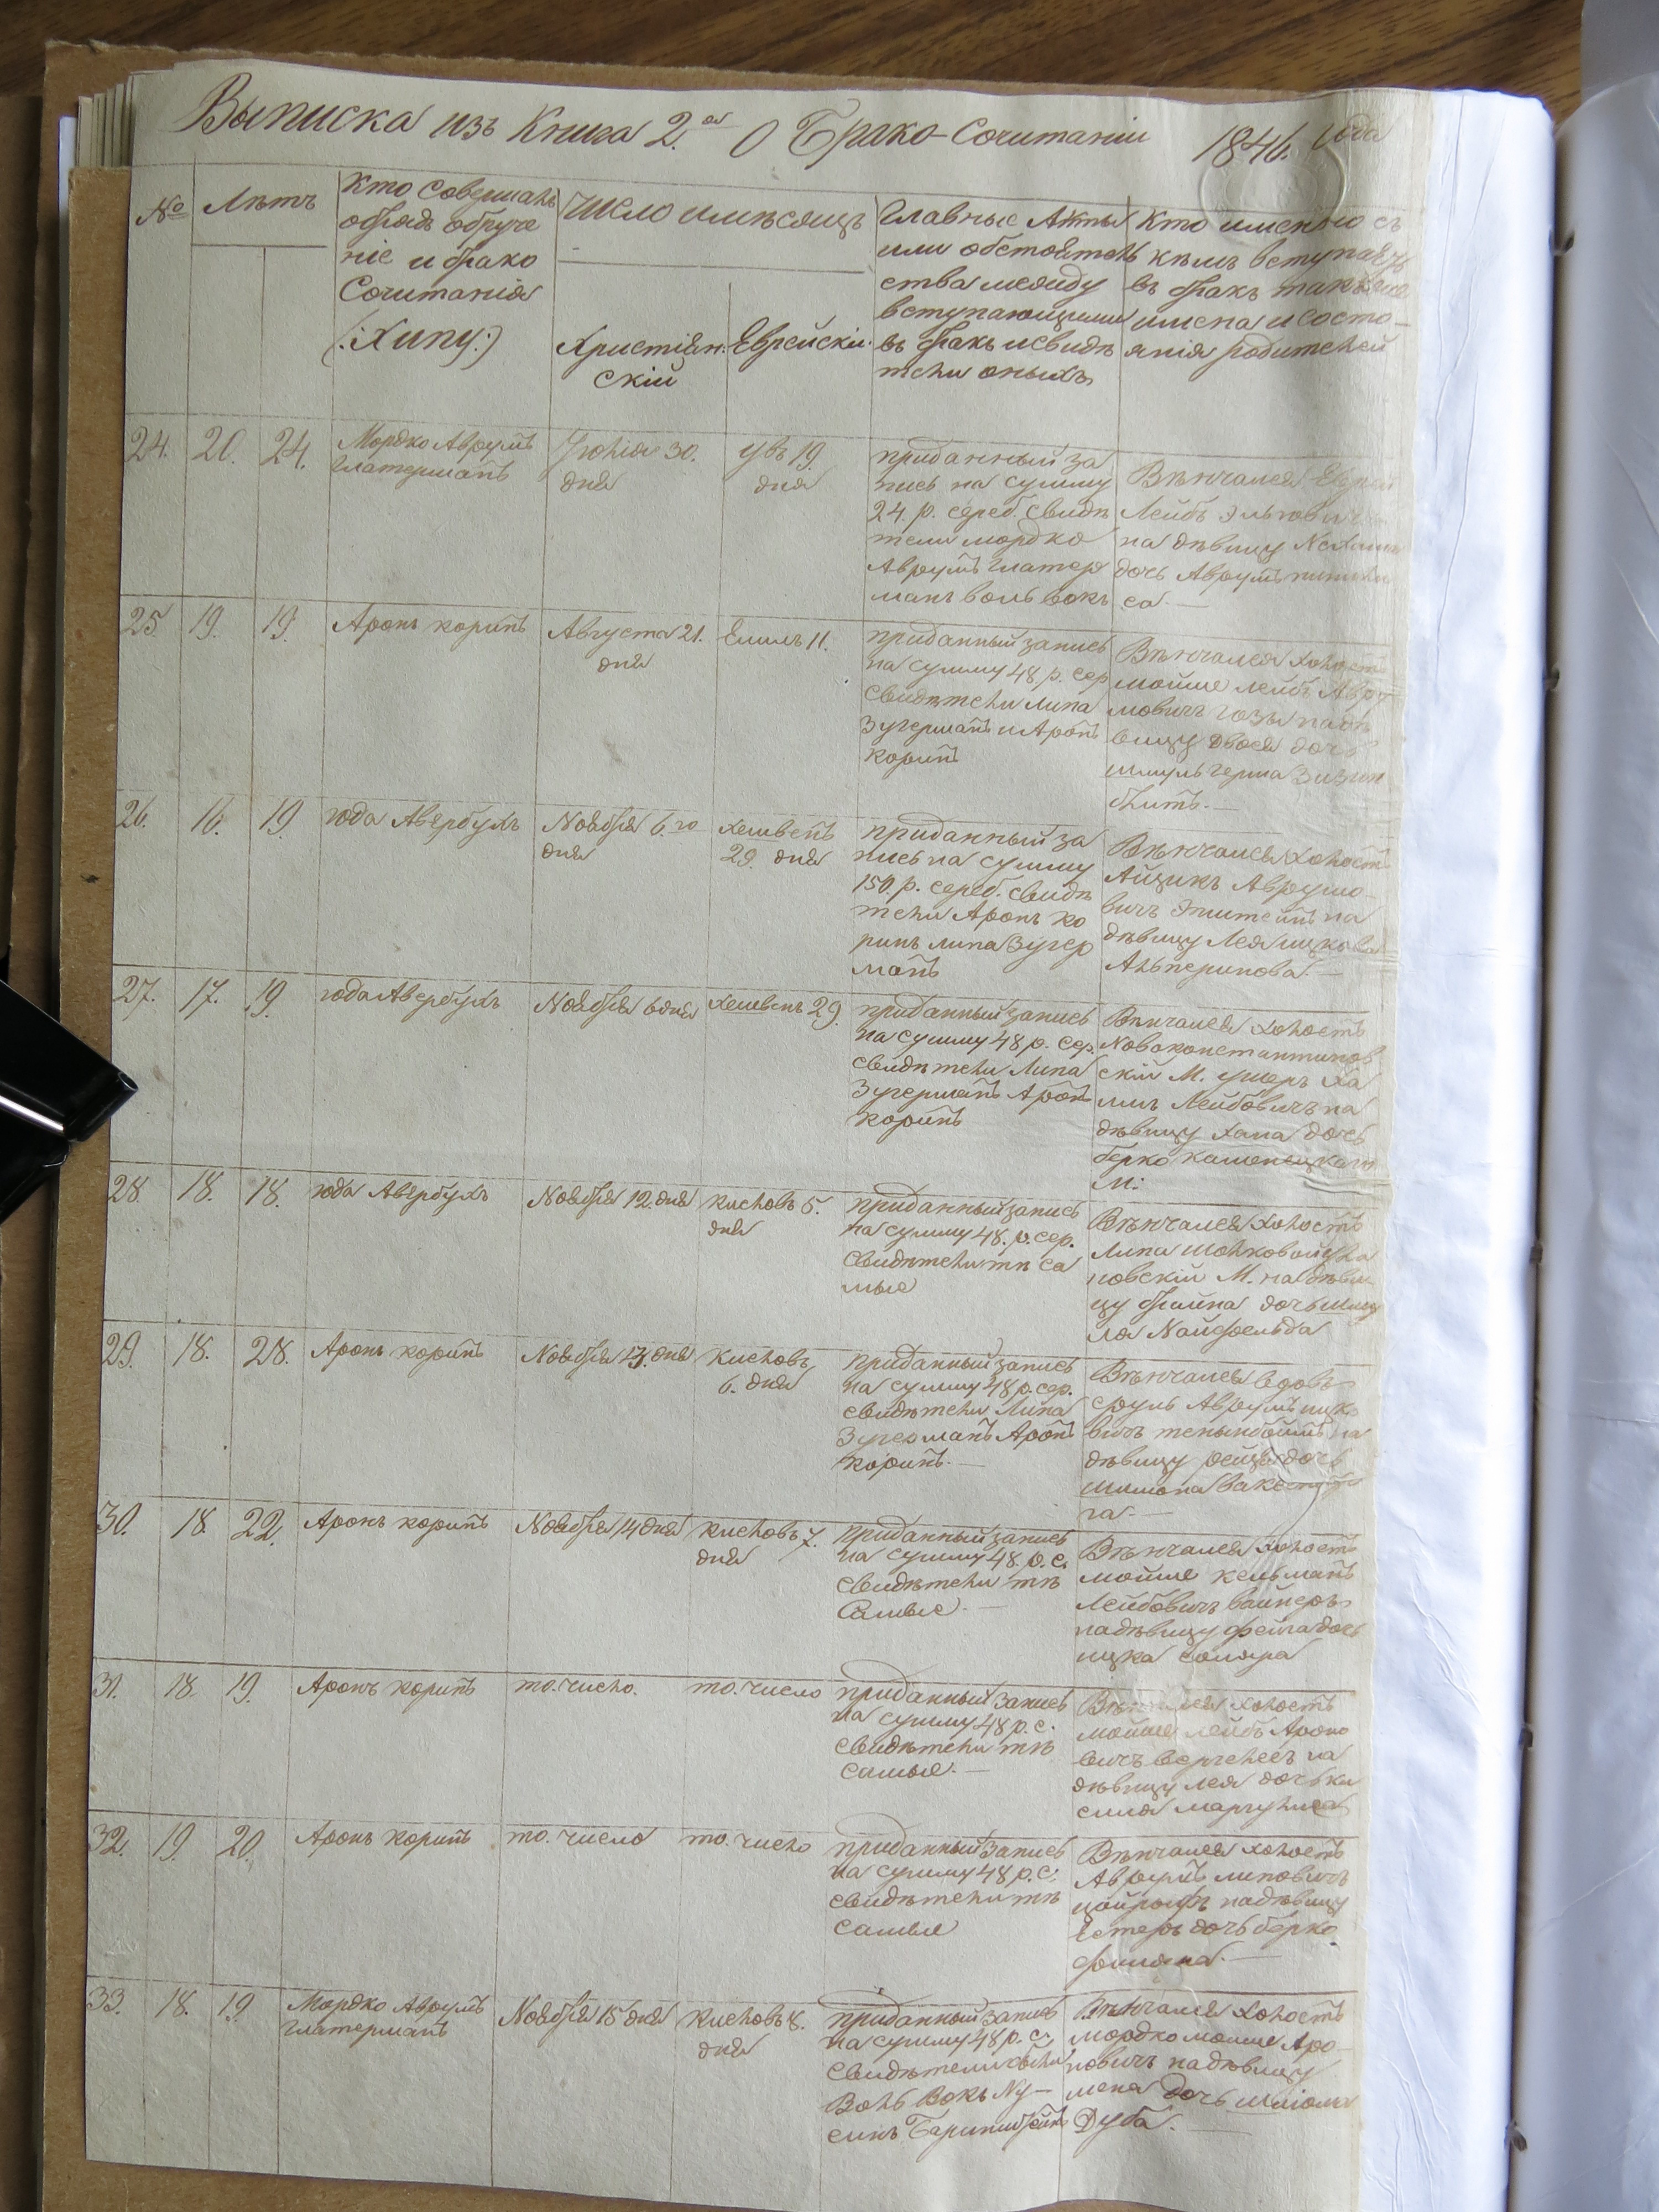 Выписка изъ Книга 2.ая О Брако-Сочитаніи 1846. Года
№
Лѣтъ
Кто Совершалъ
обрядъ обруче
ніе и брако
Сочитанія
(:Хипу:)
Число и мѣсяцъ
Христіян-
скій
Еврейскій.
Главные Акты
или обстоятель
ства между
вступающими
въ бракъ и свидѣ
тели оныхъ
Кто именно съ
кѣмъ вступаетъ
въ бракъ также
имена и состо-
янія родителей
24. 20. 24.
Мордко Аврумъ
Глатерманъ
Іюлія 30.
дня
Увъ 19.
дня
приданный за
пись на сумму
24. р. сереб. свидѣ
тели мордко
Аврумъ Глатер
манъ воль вокъ
Вѣнчался Еврей
Лейбъ
на дѣвицу
дочь Аврумъ
са. —
25. 19. 19.
Аронъ коринъ
Августа 21.
дня
Елилъ 11.
приданный запись
на сумму 48 р. сер
свидѣтели липа
Зугерманъ и Аронъ
коринъ
Вѣнчался холостъ
мойше лейбъ Авру
мовичъ на дѣ
вицу двося дочь
шмуль герша
26. 16. 19.
юда Авербухъ
Ноября 6.го
дня
хешвенъ
29. дня
приданный за
пись на сумму
150. р. сереб. свидѣ
тели Аронъ ко
ринъ липа Зугер
манъ
Вѣнчался холостъ
Айцикъ Аврумо-
вичъ Эпштейнъ на
дѣвицу Лея ицкова
Альперинова. —
27. 17. 19.
юда Авербухъ
Ноября 6 дня
Хешвенъ 29.
приданный запись
на сумму 48 р. сер.
свидѣтели Липа
Зугерманъ Аронъ
коринъ
Вѣнчался холостъ
Новоконстантинов
скій М. ушеръ ха
имъ Лейбовичъ на
дѣвицу хана дочь
берко каменецкаго
М:
28. 18. 18.
юда Авербухъ
Ноября 12. дня
кисловъ 5.
дня
приданный запись
на сумму 48. р. сер.
свидѣтели тѣ са
мые
Вѣнчался холостъ
Липа
новскій М. на дѣви
цу брайна дочь Шму
ля Найфельда
29. 18. 28.
Аронъ коринъ
Ноября 13. дня
Кисловъ
6. дня
приданный запись
на сумму 48 р. сер.
свидѣтели Липа
Зугерманъ Аронъ
коринъ. —
Вѣнчался вдовъ
сруль Аврумъ ицко
вичъ на
дѣвицу дочь
шимона
на. —
30. 18. 22.
Аронъ коринъ
Ноября 14 дня
кисловъ 7.
дня
приданный запись
на сумму 48. р. с.
свидѣтели тѣ
Самые. —
Вѣнчался холостъ
мойше кельманъ
Лейбовичъ вайнеръ
на дѣвицу фейга дочь
ицка
31. 18. 19.
Аронъ коринъ
то. число.
то. число
приданный запись
на сумму 48 р. с.
свидѣтели тѣ
самые. —
Вѣнчался холостъ
мойше лейбъ Ароно
вичъ на
дѣвицу лея дочь ки
силя маргулиса
32. 19. 20.
Аронъ коринъ
то. число
то. число
приданный запись
на сумму 48 р. с.
свидѣтели тѣ
самые
Вѣнчался холостъ
Аврумъ липовичъ
на дѣвицу
естеръ дочь берко
33. 18. 19.
Мордко Аврумъ
Глатерманъ
Ноября 15 дня
Кисловъ 8.
дня
приданный запись
на сумму 48 р. с.
Свидѣтели были
Воль Вокъ Ну-
синъ
Вѣнчался холостъ
мордко мойше Аро-
новичъ на дѣвицу
дочь шліома
Дуба. —